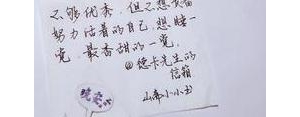 不够优秀，但已想负
努力活着的自己，想睡一
觉，最香甜的一觉。
@德卡先生的
信箱
山第小小士
晚安